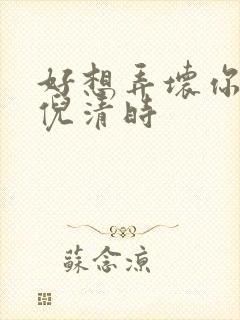 好想弄壞你
倪清時
蘇念涼